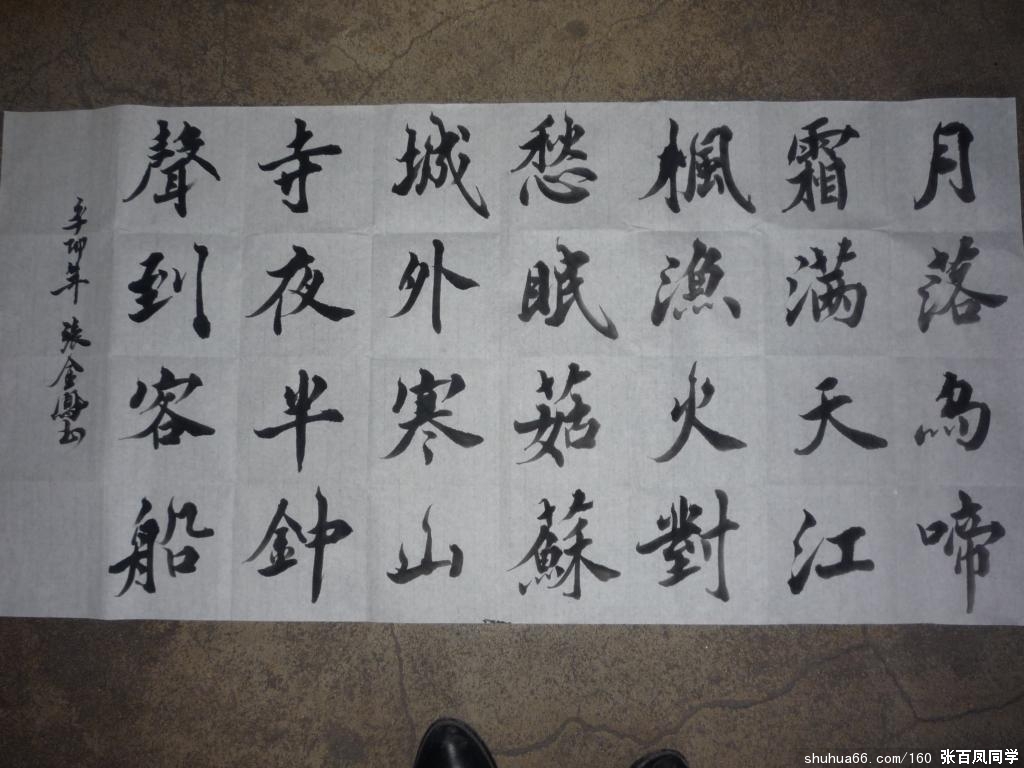 月落烏啼
霜满天江
楓漁火對
愁眠菇蘇
城外寒山
寺夜半鈡
聲到客船
辛卯年 張金鳳书
shuhua66.com/160 张百凤同学